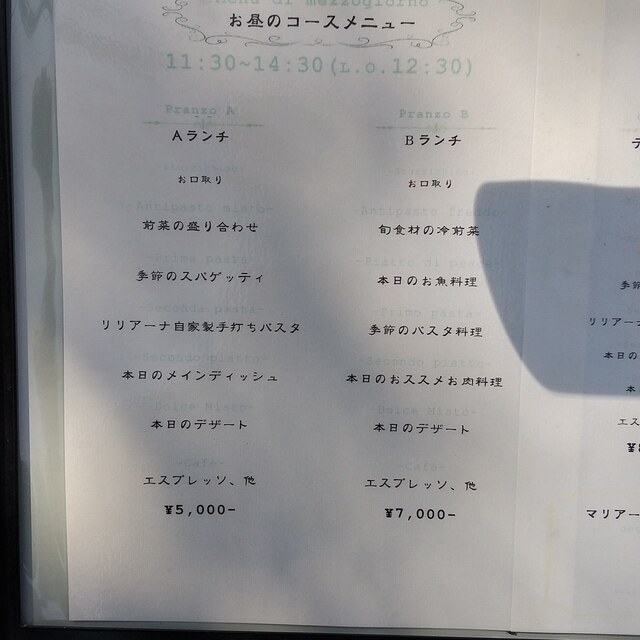 Menu di mezzogiorno
お昼のコースメニュー
11:30~14:30(L.O.12:30)
Pranzo A
Aランチ
お口取り
-Antipasto misto-
前菜の盛り合わせ
-Primo pasta-
季節のスパゲッティ
-Secondo pasta-
リリアーナ自家製手打ちパスタ
-Secondo piatto-
本日のメインディッシュ
-Dolce Misto-
本日のデザート
-Cafe-
エスプレッソ、他
¥5,000-
Pranzo B
Bランチ
お口取り
-Antipasto freddo-
旬食材の冷前菜
-Piatto di pesce-
本日のお魚料理
-Primo pasta-
季節のパスタ料理
-Secondo piatto-
本日のおススメお肉料理
-Dolce Misto-
本日のデザート
-Cafe-
エスプレッソ、他
¥7,000-
季節
リリアー
本日の
本
エス
マリアー